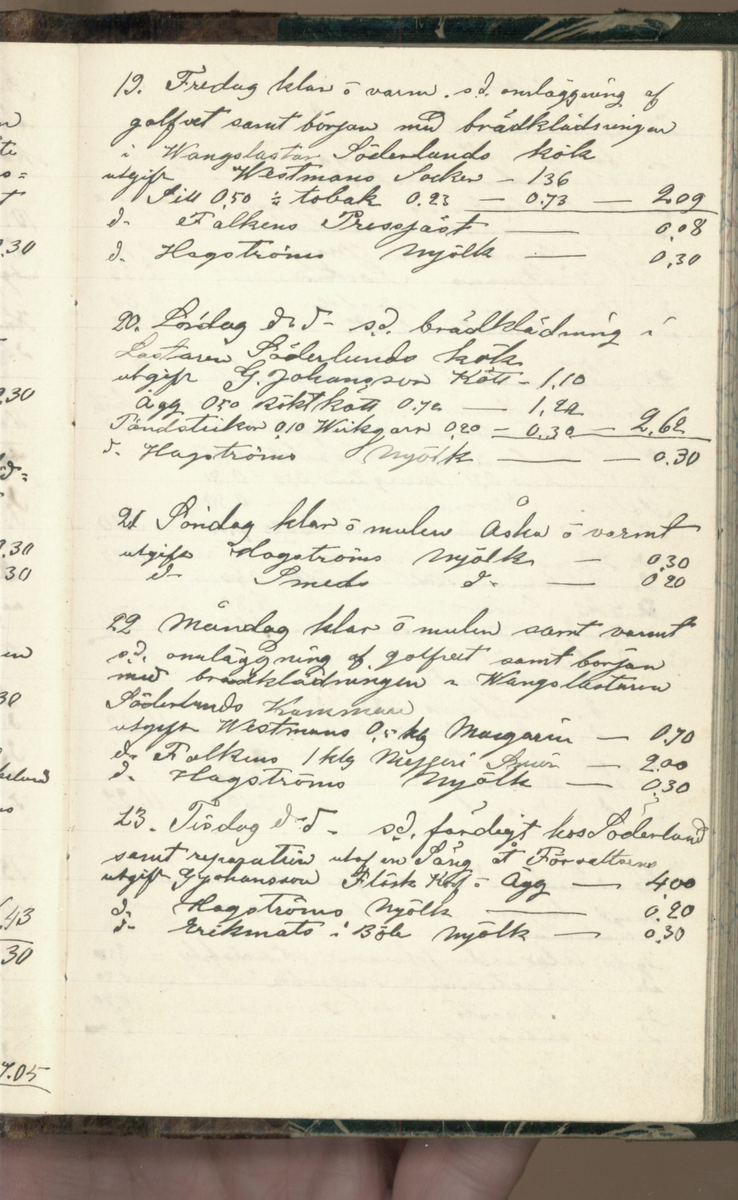 19. Fredag klar ō varm. s.d. omläggning af
golfvet samt början med brädklädningen
i Wangslastar Söderlunds kök
utgift Westmans Socker — 136
Sill 0,50 ½ tobak 0.23 — 0.73 — 2,09
d- Falkens Pressjäst — 0,08
d. Hagströms Mjölk — 0,30
20. Lördag d-d- s.d. brädklädning i
Lastaren Söderlunds kök
utgift G. Johansson Kött - 1,10
Ägg 0,50 rökt kött 0.72 — 1,22
Tändstickor 0,10 Wirkgarn 0,20 = 0.30 — 2,62
d- Hagströms Mjölk — 0.30
21 Söndag klar ō mulen Åska ō varmt
utgift Hagströms Mjölk — 0,30
d- Smeds d- — 0,20
22 Måndag klar ō mulen samt varmt
s.d. omläggning af golfvet samt början
med brädklädningen i Wangslastaren
Söderlunds Kammare
utgift Westmans 0,5 klg Margarin — 0,70
d- Falkens 1 klg Mejeri Smör — 2.00
d. Hagströms Mjölk — 0,30
23. Tisdag d-d- s.d. färdigt hos Söderlund
samt reparation utaf en Säng åt Förvaltaren
utgift G Johansson Fläsk Köt ō Ägg — 4,00
d. Hagströms Mjölk — 0,20
d- Erikmats i Böle Mjölk — 0.30
0.30
30
43
30
7.05